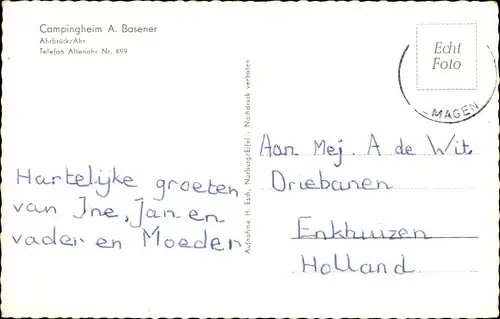 Campingheim A. Basener
Ahrbrück/Ahr
Telefon Altenahr Nr. 899
Echt
Foto
MAGEN
Aufnahme H. Esch, Nürburg/Eifel - Nachdruck verboten
Hartelijke groeten
van Ine, Jan en
vader en Moeder
Aan Mej. A de Wit.
Driebanen
Enkhuizen
Holland